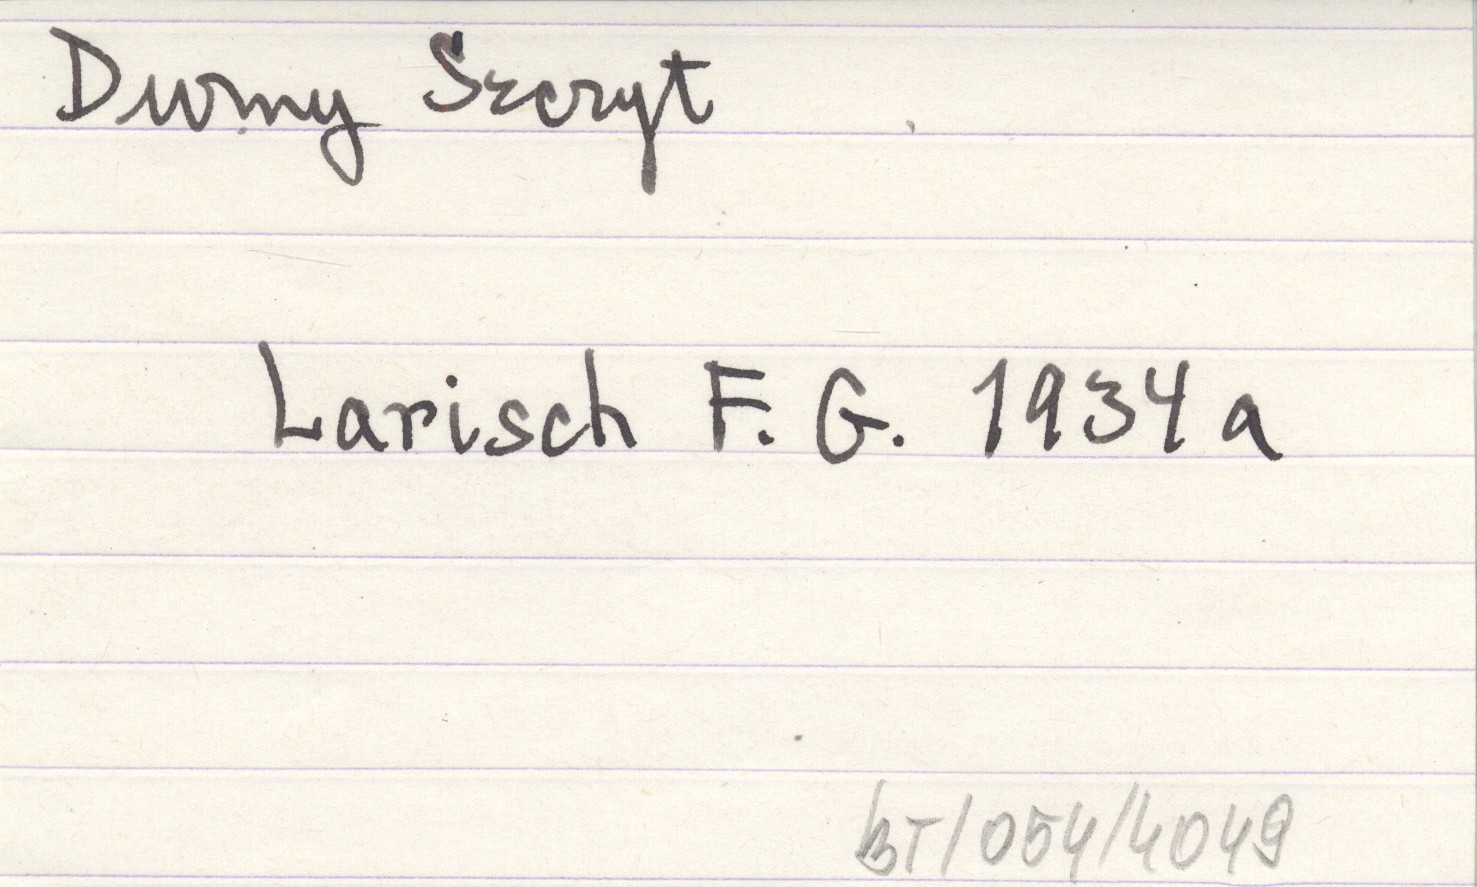 Durny Szczyt
Larisch F. G. 1934 a
BT/054/4049